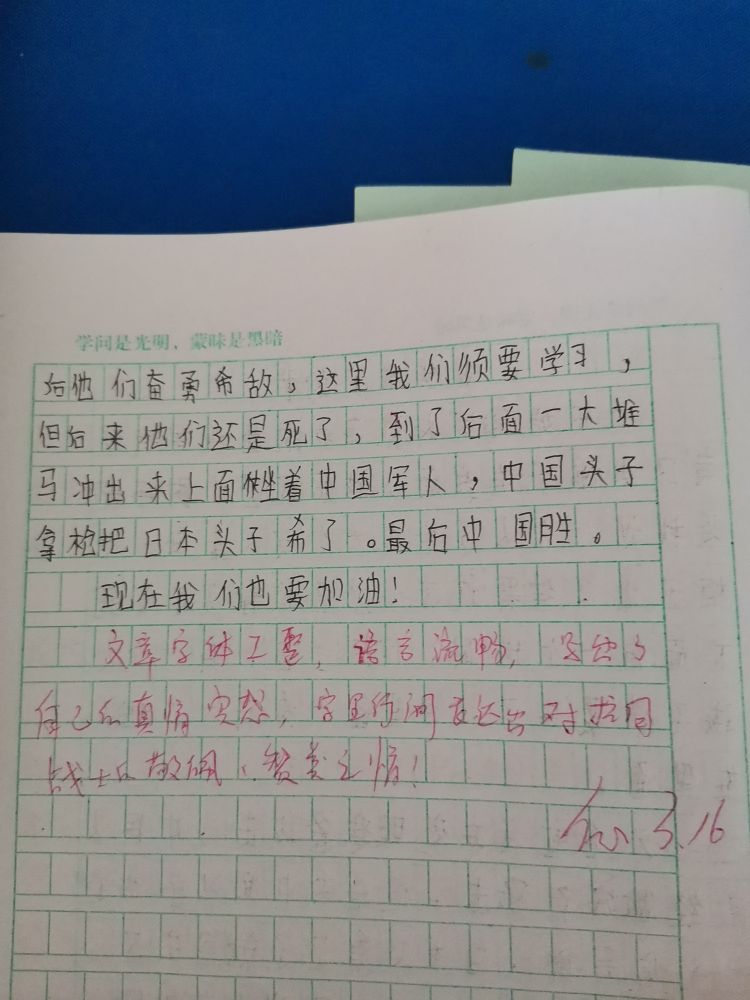 学问是光明，蒙昧是黑暗
后他们奋勇希敌，这里我们须要学习，
但后来他们还是死了，到了后面一大堆
马冲出来上面坐着中国军人，中国头子
拿枪把日本头子希了。最后中国胜。
现在我们也要加油！
文章字体工整，语言流畅，写出了
自己的真情实感，字里行间表达出对抗日
战士的敬佩、赞美之情！
3.16